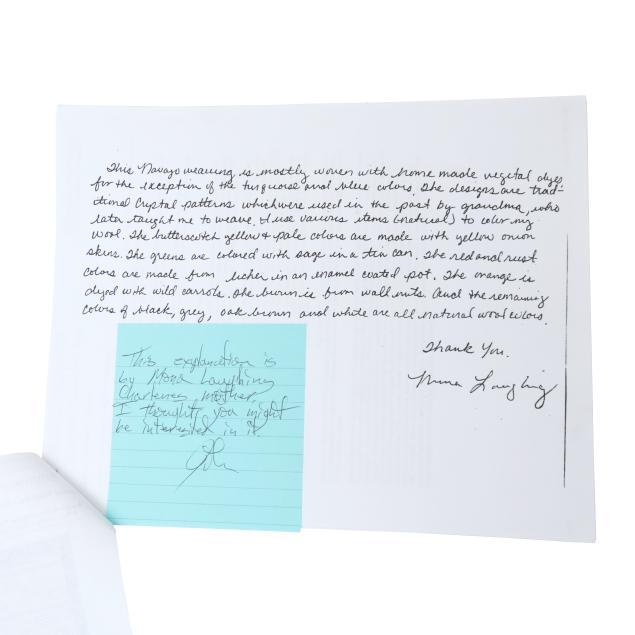 This Navajo weaving, is mostly woven with home made vegetal dyes
for the exception of the turquoise and blue colors. The designs are trad-
itional Crystal patterns which were used in the past by grandma, who
later taught me to weave. I use various items (natural) to color my
wool. The butterscotch yellow & pale colors are made with yellow onion
skins. The greens are colored with sage in a tin can. The red and rust
colors are made from lichen in an enamel coated pot. The orange is
dyed with wild carrots. The brown is from wallnuts. And the remaining
colors of black, grey, oak brown and white are all natural wool colors.
Thank You.
Laughing
This explanation is
by Mona Laughing
Charlenes mother.
I thought you might
be interested in it.